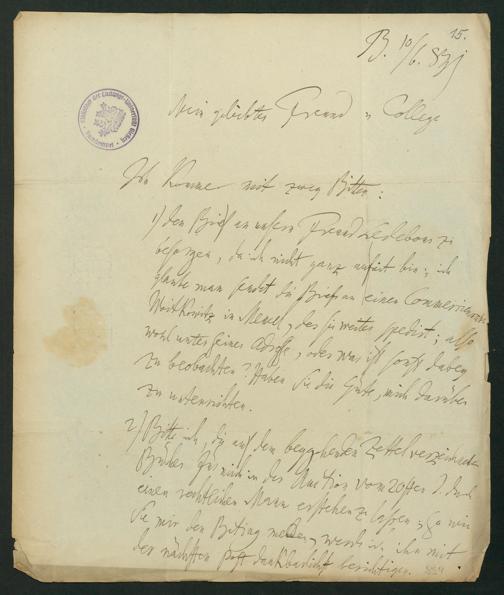 15.
B. 10/6.
Mein geliebter Freund u College
Ich komme mit zwey Bitten:
1) den Brief an unsern Freund Ledebour zu
besorgen, da ich nicht ganz bin; ich
glaube man sendet die Briefe an einen Commercienrath
in Memel, der sie weiter spedirt; also
wohl unter seiner Adresse, oder was ist sonst dabey
zu beobachten? Haben Sie die Güte, mich darüber
zu unterrichten.
2) Bitte ich, die auf dem beygehenden Zettel verzeichneten
Bücher für mich in der Auction vom 20sten d. durch
einen rechtlichen Mann erstehen zu lassen
Sie mir den Betrag melden, werde ich ihn mit
der nächsten Post dankbarlichst berichtigen.